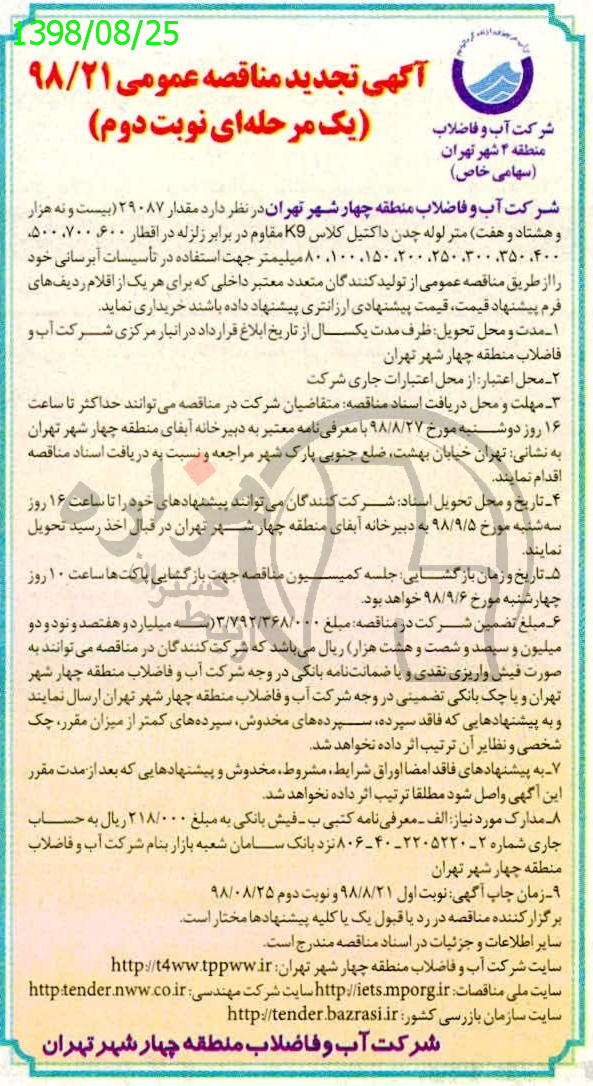 1398/08/25
آگهی تجدید مناقصه عمومی ۹۸/۲۱
(یک مرحله‌ای نوبت دوم)
شرکت آب و فاضلاب
منطقه ۴ شهر تهران
(سهامی خاص)
شرکت آب و فاضلاب منطقه چهار شهر تهران در نظر دارد مقدار ۲۹۰۸۷ (بیست و نه هزار
و هشتاد و هفت) متر لوله چدن داکتیل کلاس K9 مقاوم در برابر زلزله در اقطار ۶۰۰، ۷۰۰، ۵۰۰،
۴۰۰، ۳۵۰، ۳۰۰، ۲۵۰، ۲۰۰، ۱۵۰، ۱۰۰، ۸۰ میلیمتر جهت استفاده در تأسیسات آبرسانی خود
را از طریق مناقصه عمومی از تولیدکنندگان متعدد معتبر داخلی که برای هر یک از اقلام ردیف‌های
فرم پیشنهاد قیمت، قیمت پیشنهادی ارزانتری پیشنهاد داده باشند خریداری نماید.
۱ـ مدت و محل تحویل: ظرف مدت یکسال از تاریخ ابلاغ قرارداد در انبار مرکزی شرکت آب و
فاضلاب منطقه چهار شهر تهران
۲ـ محل اعتبار: از محل اعتبارات جاری شرکت
۳ـ مهلت و محل دریافت اسناد مناقصه: متقاضیان شرکت در مناقصه می‌توانند حداکثر تا ساعت
۱۶ روز دوشنبه مورخ ۹۸/۸/۲۷ با معرفی‌نامه معتبر به دبیرخانه آبفای منطقه چهار شهر تهران
به نشانی: تهران خیابان بهشت، ضلع جنوبی پارک شهر مراجعه و نسبت به دریافت اسناد مناقصه
اقدام نمایند.
۴ـ تاریخ و محل تحویل اسناد: شرکت‌کنندگان می‌توانند پیشنهادهای خود را تا ساعت ۱۶ روز
سه‌شنبه مورخ ۹۸/۹/۵ به دبیرخانه آبفای منطقه چهار شهر تهران در قبال اخذ رسید تحویل
نمایند.
۵ـ تاریخ و زمان بازگشایی: جلسه کمیسیون مناقصه جهت بازگشایی پاکت‌ها ساعت ۱۰ روز
چهارشنبه مورخ ۹۸/۹/۶ خواهد بود.
۶ـ مبلغ تضمین شرکت در مناقصه: مبلغ ۳/۷۹۲/۳۶۸/۰۰۰ (سه میلیارد و هفتصد و نود و دو
میلیون و سیصد و شصت و هشت هزار) ریال می‌باشد که شرکت‌کنندگان در مناقصه می‌توانند به
صورت فیش واریزی نقدی و یا ضمانت‌نامه بانکی در وجه شرکت آب و فاضلاب منطقه چهار شهر
تهران و یا چک بانکی تضمینی در وجه شرکت آب و فاضلاب منطقه چهار شهر تهران ارسال نمایند
و به پیشنهادهایی که فاقد سپرده، سپرده‌های مخدوش، سپرده‌های کمتر از میزان مقرر، چک
شخصی و نظایر آن ترتیب اثر داده نخواهد شد.
۷ـ به پیشنهادهای فاقد امضا اوراق شرایط، مشروط، مخدوش و پیشنهادهایی که بعد از مدت مقرر
این آگهی واصل شود مطلقا ترتیب اثر داده نخواهد شد.
۸ـ مدارک مورد نیاز: الف ـ معرفی‌نامه کتبی ب ـ فیش بانکی به مبلغ ۲۱۸/۰۰۰ ریال به حساب
جاری شماره ۲ـ ۲۲۰۵۲۲۰ـ ۴۰ـ ۸۰۶ نزد بانک سامان شعبه بازار بنام شرکت آب و فاضلاب
منطقه چهار شهر تهران
۹ـ زمان چاپ آگهی: نوبت اول ۹۸/۸/۲۱ و نوبت دوم ۹۸/۰۸/۲۵
برگزارکننده مناقصه در رد یا قبول یک یا کلیه پیشنهادها مختار است.
سایر اطلاعات و جزئیات در اسناد مناقصه مندرج است.
سایت شرکت آب و فاضلاب منطقه چهار شهر تهران: http://t4ww.tppww.ir
سایت ملی مناقصات: http://iets.mporg.ir سایت شرکت مهندسی: http:tender.nww.co.ir
سایت سازمان بازرسی کشور: http://tender.bazrasi.ir
شرکت آب و فاضلاب منطقه چهار شهر تهران